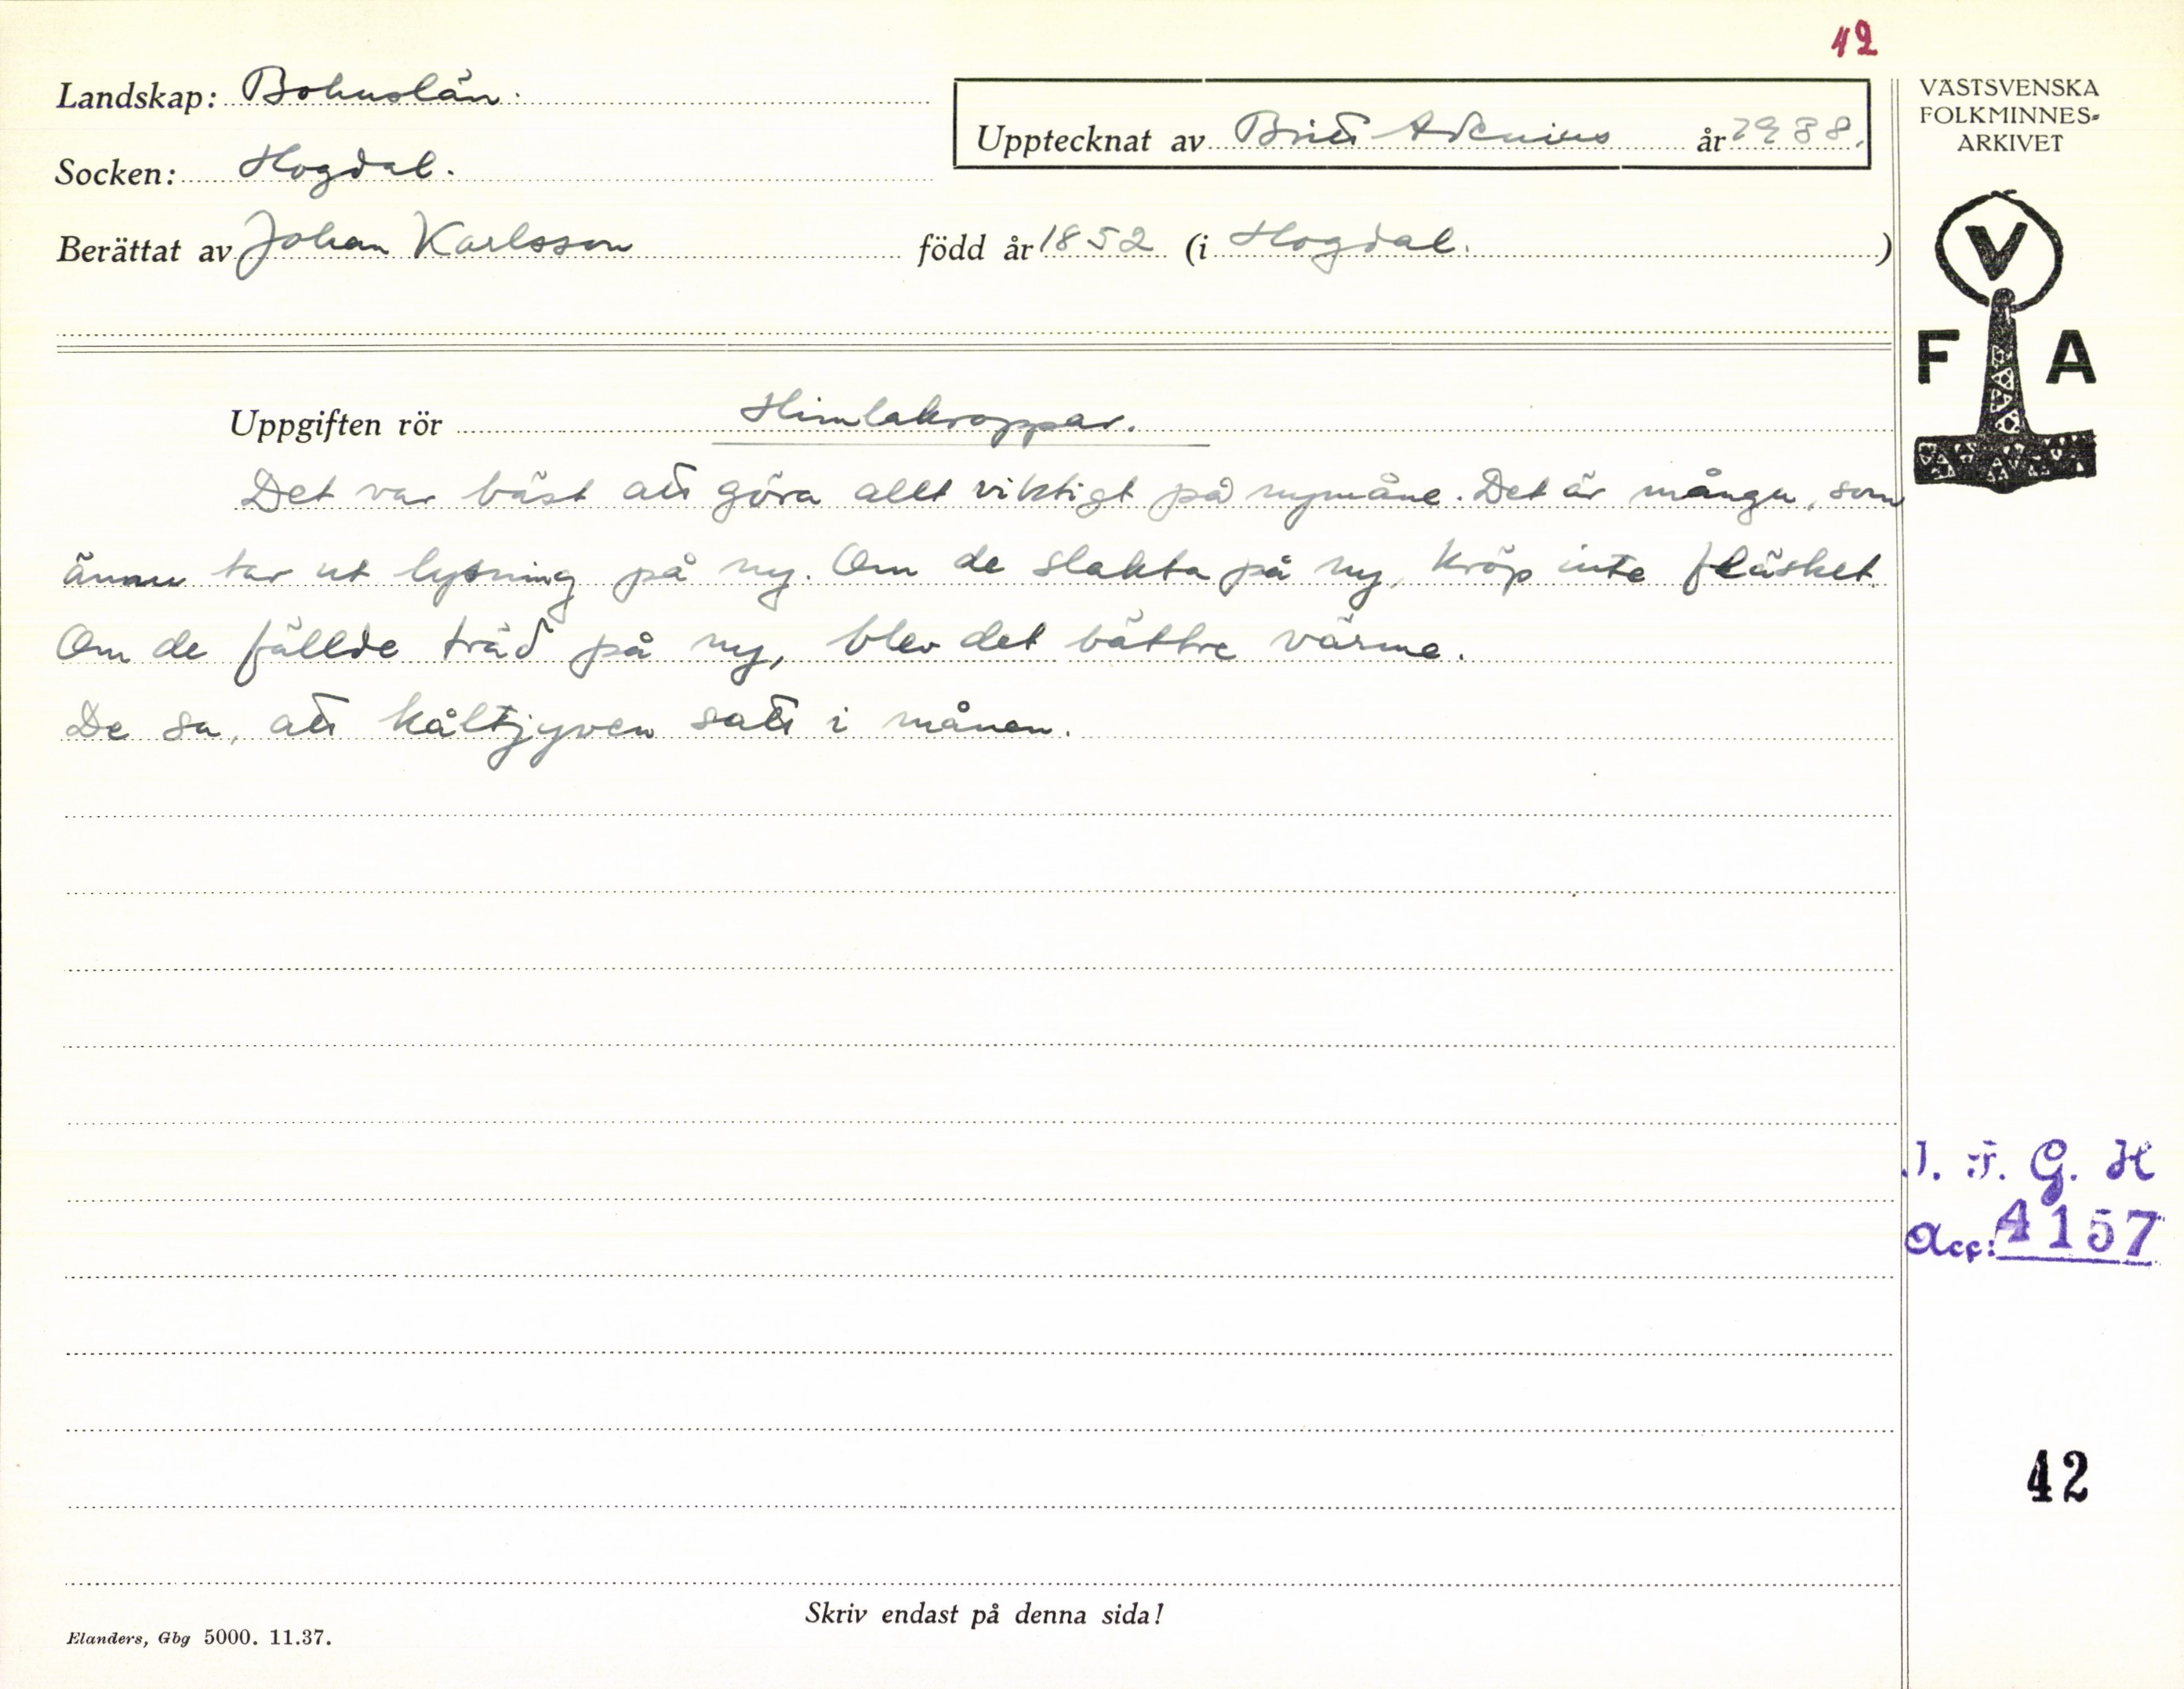 42
Landskap: Bohuslän.
Upptecknat av Britt Adenius år 1938.
Socken: Hogdal.
Berättat av Johan Karlsson född år 1852 (i Hogdal. )
VÄSTSVENSKA
FOLKMINNES-
ARKIVET
V
F A
Uppgiften rör Himlakroppar.
Det var bäst att göra allt viktigt på nymåne. Det är många, som
ännu tar ut lysning på ny. Om de slakta på ny, kröp inte fläsket.
Om de fällde träd på ny, blev det bättre värme.
De sa, att kåltjyven satt i månen.
I. F. G. H
Acc: 4157
42
Skriv endast på denna sida!
Elanders, Gbg 5000. 11.37.